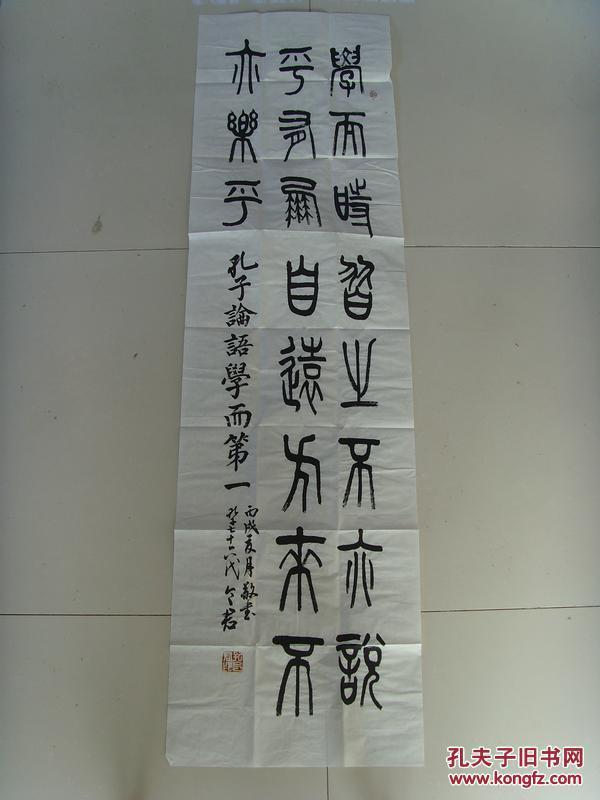 學而時習之不亦說
乎有朋自遠方來不
亦樂乎
孔子論語學而第一
丙戌夏月敬書
孔子七十六代令岩
孔夫子旧书网
www.kongfz.com